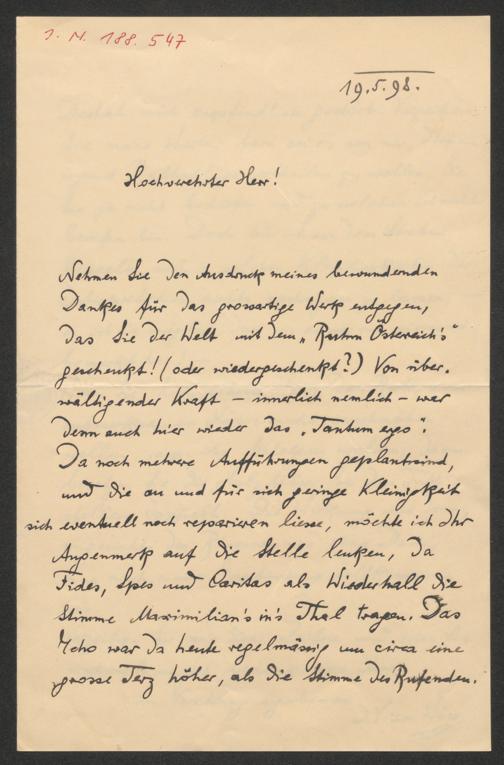 I. N. 188.547
19.5.98.
Hochverehrter Herr!
Nehmen Sie den Ausdruck meines bewundernden
Dankes für das grossartige Werk entgegen,
das Sie der Welt mit dem „Ruhm Österreich's"
geschenkt! (oder wiedergeschenkt?) Von über-
wältigender Kraft – innerlich nemlich – war
denn auch hier wieder das „Tantum ergo".
Da noch mehrere Aufführungen geplant sind,
und die an und für sich geringe Kleinigkeit
sich eventuell noch reparieren liesse, möchte ich Ihr
Augenmerk auf die Stelle lenken, da
Fides, Spes und Caritas als Wiederhall die
Stimme Maximilian's in's Thal tragen. Das
Echo war da heute regelmässig um circa eine
grosse Terz höher, als die Stimme des Rufenden.